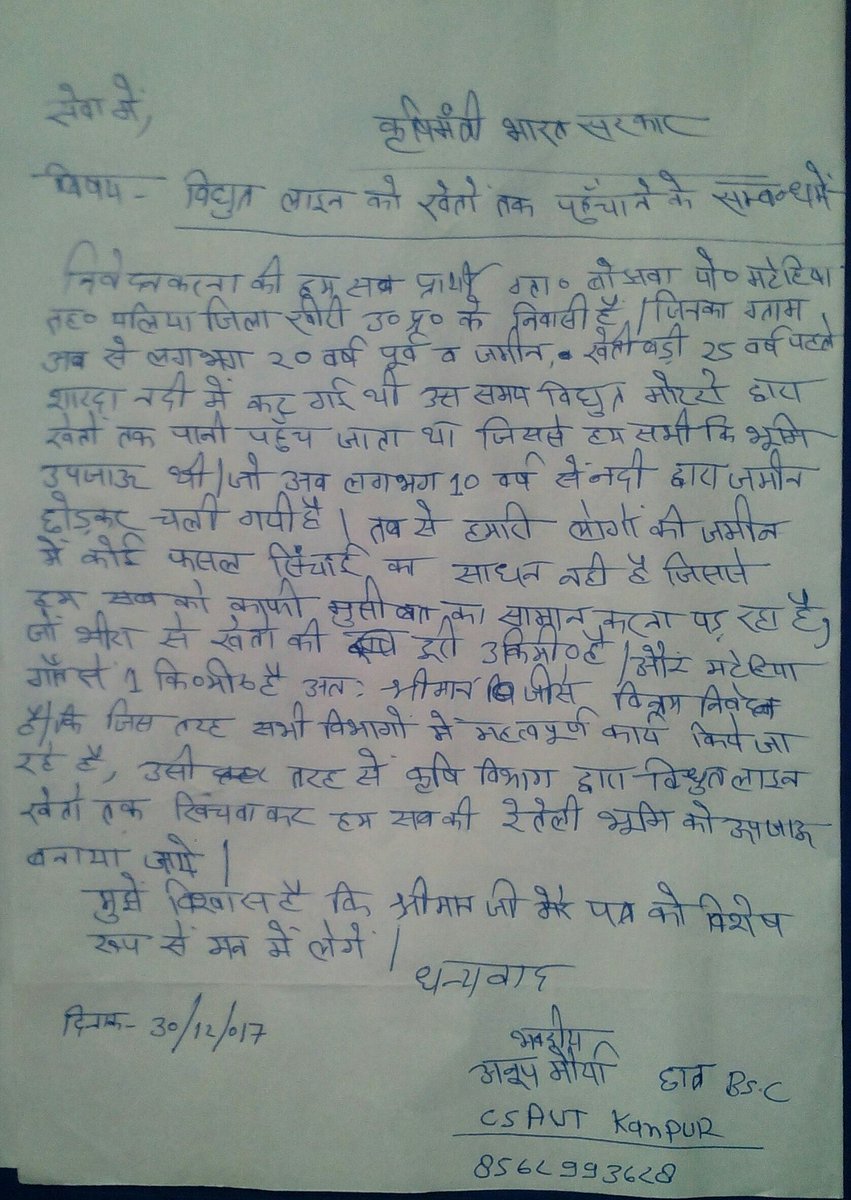 सेवा में,
कृषिमंत्री भारत सरकार
विषय - विद्युत लाइन को खेतों तक पहुँचाने के सम्बन्ध में
निवेदन करना की हम सब प्रार्थी ग्रा० पो० मटेहिया
तह० पलिया जिला खीरी उ० प्र० के निवासी है / जिनका ग्राम
अब से लगभग २० वर्ष पूर्व व जमीन, खेती वड़ी 25 वर्ष पहले
शारदा नदी में कट गई थी उस समय विद्युत मोटरो द्वारा
खेतों तक पानी पहुँच जाता था जिससे हम सभी कि भूमि
उपजाऊ थी / जो अब लगभग 10 वर्ष से नदी द्वारा जमीन
छोड़कर चली गयी है / तब से हमारी लोगों की जमीन
में कोई फसल सिंचाई का साधन नही है जिससे
हम सब को काफी मुसीबत का सामान करना पड़ रहा है,
जो भीरा से खेतो की दूरी 3 कि०मी० है / और मटेहिया
से 1 कि०मी० है अतः श्रीमान जी से विन्रम निवेदन
है / कि जिस तरह सभी विभागों में महत्वपूर्ण कार्य किये जा
रहे है, उसी तरह से कृषि विभाग द्वारा विधुत लाइन
खेतो तक खिंचवाकर हम सब की रेतेली भूमि को उपजाऊ
बनाया जाये /
मुझे विश्वास है कि श्रीमान जी मेरे पत्र को विशेष
रूप से मन में लेगें /
धन्यवाद
दिनाक - 30/12/017
भवदीय
अनूप मौर्या छात्र BS.C
CSAUT Kanpur
8562993628